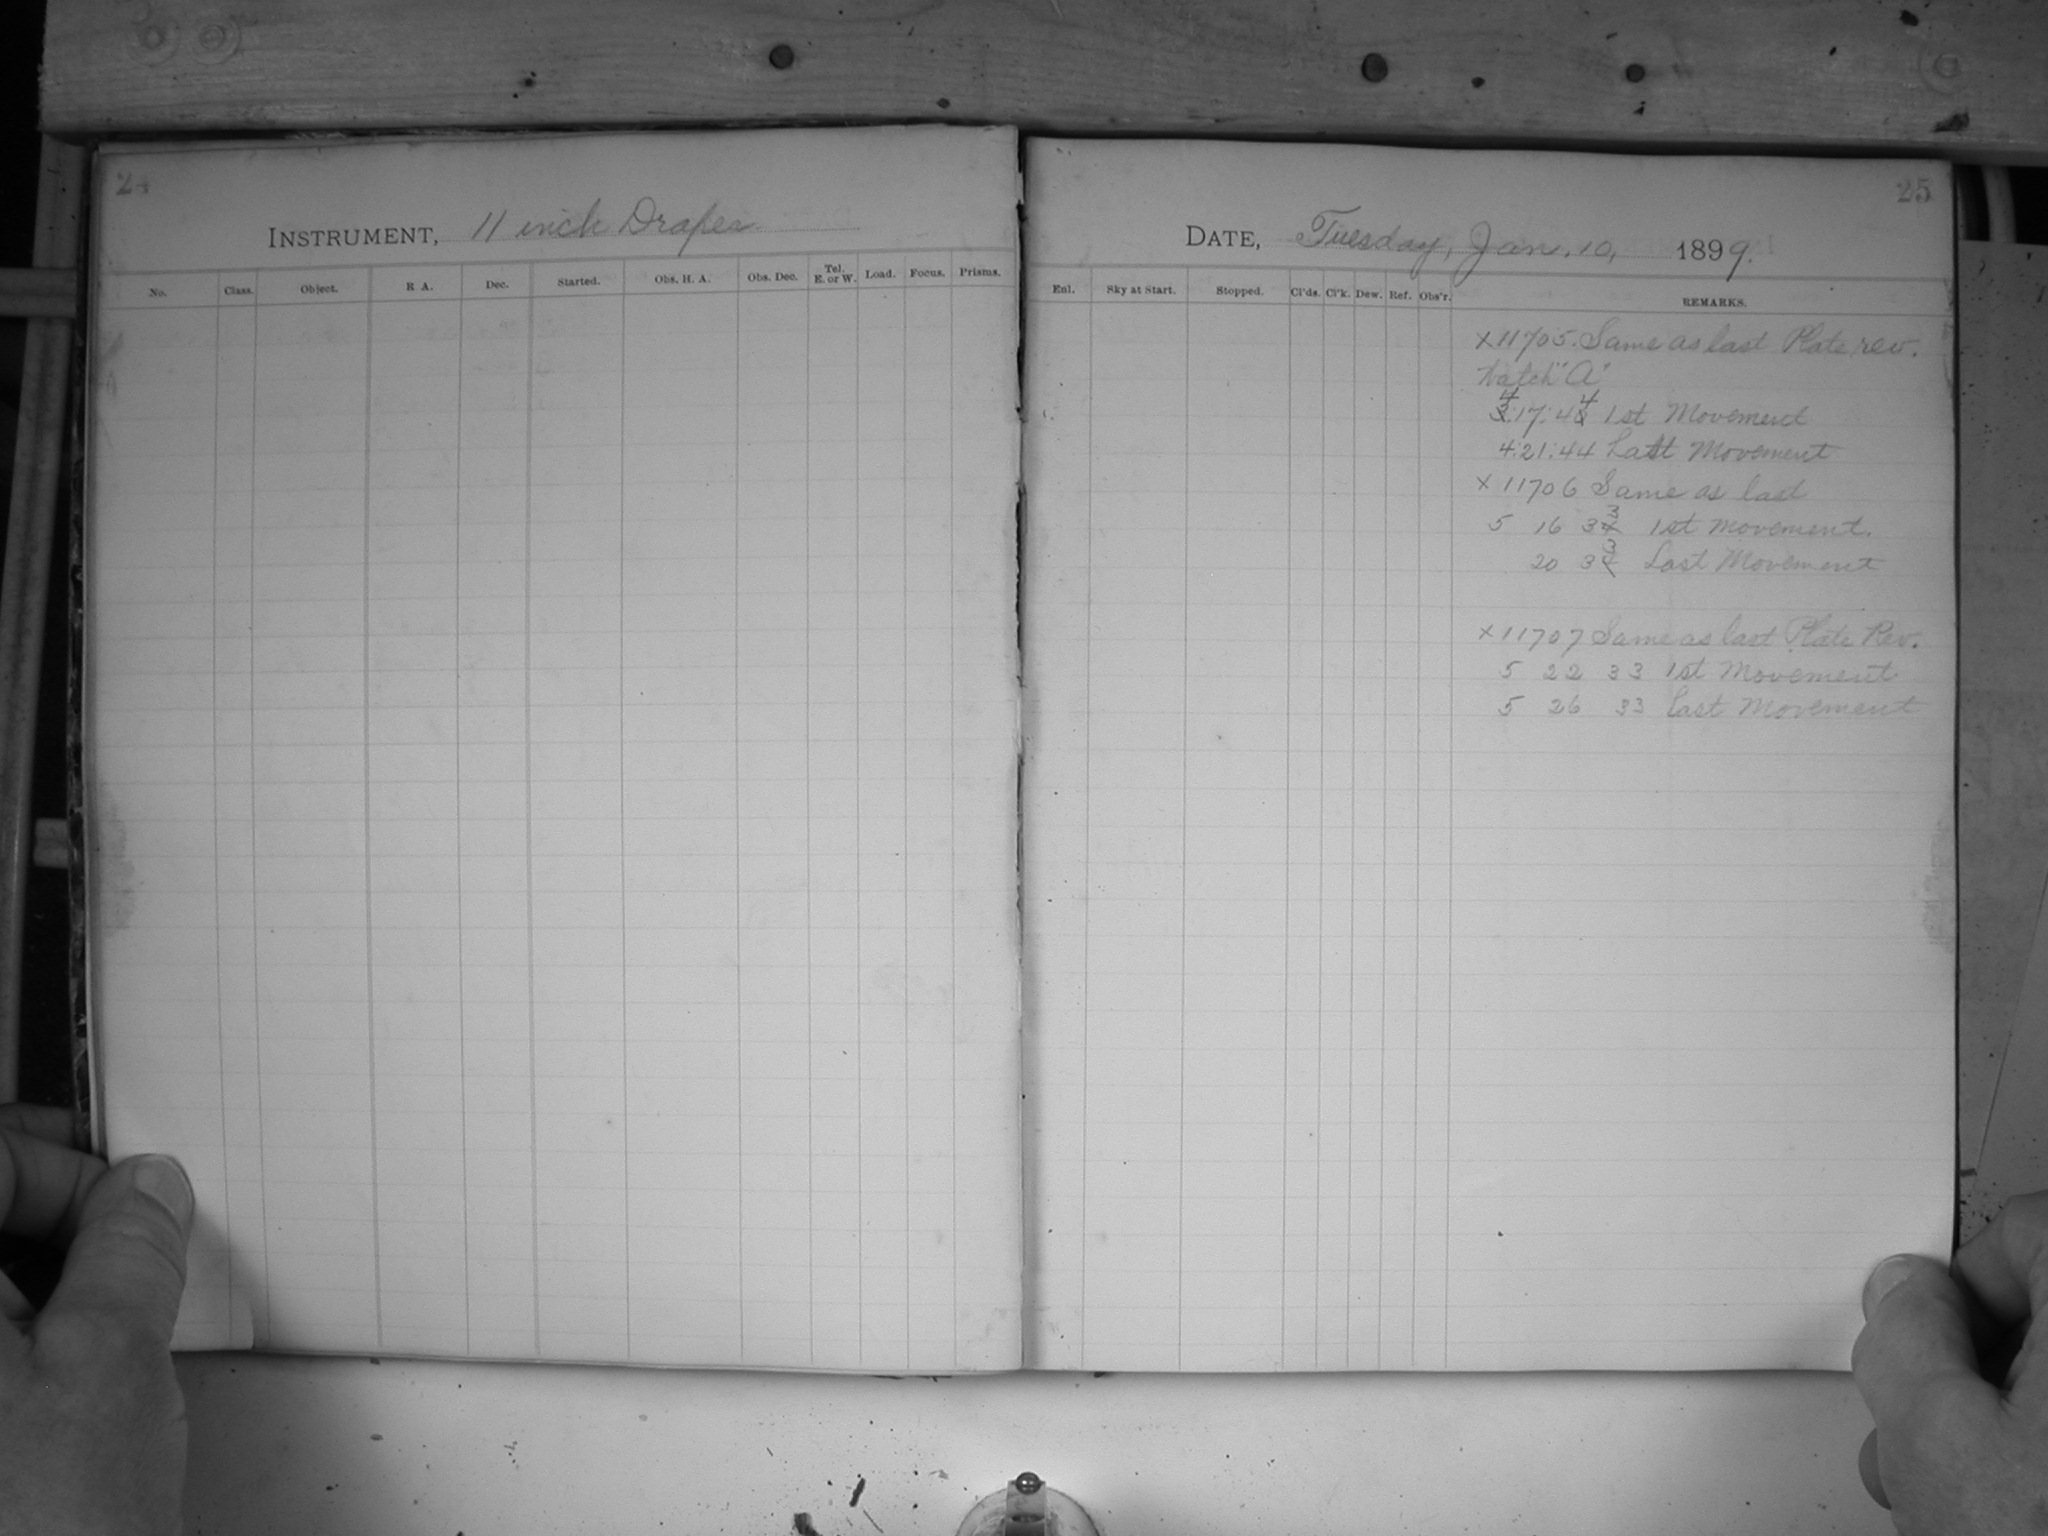 24
INSTRUMENT, 11 inch Draper.
No. Class. Object. R A. Dec. Started. Obs. H. A. Obs. Dec. Tel. E. or W. Load. Focus. Prisms.
25
DATE, Tuesday, Jan. 10, 1899.
Enl. Sky at Start. Stopped. Cl'ds. Cl'k. Dew. Ref. Obs'r. REMARKS.
X 11705. Same as last Plate rev.
Watch "A"
4:17:44 1st Movement
4:21:44 Last Movement
X 11706 Same as last
5 16 33 1st Movement.
20 33 Last Movement
X 11707 Same as last Plate Rev.
5 22 33 1st Movement
5 26 33 Last Movement